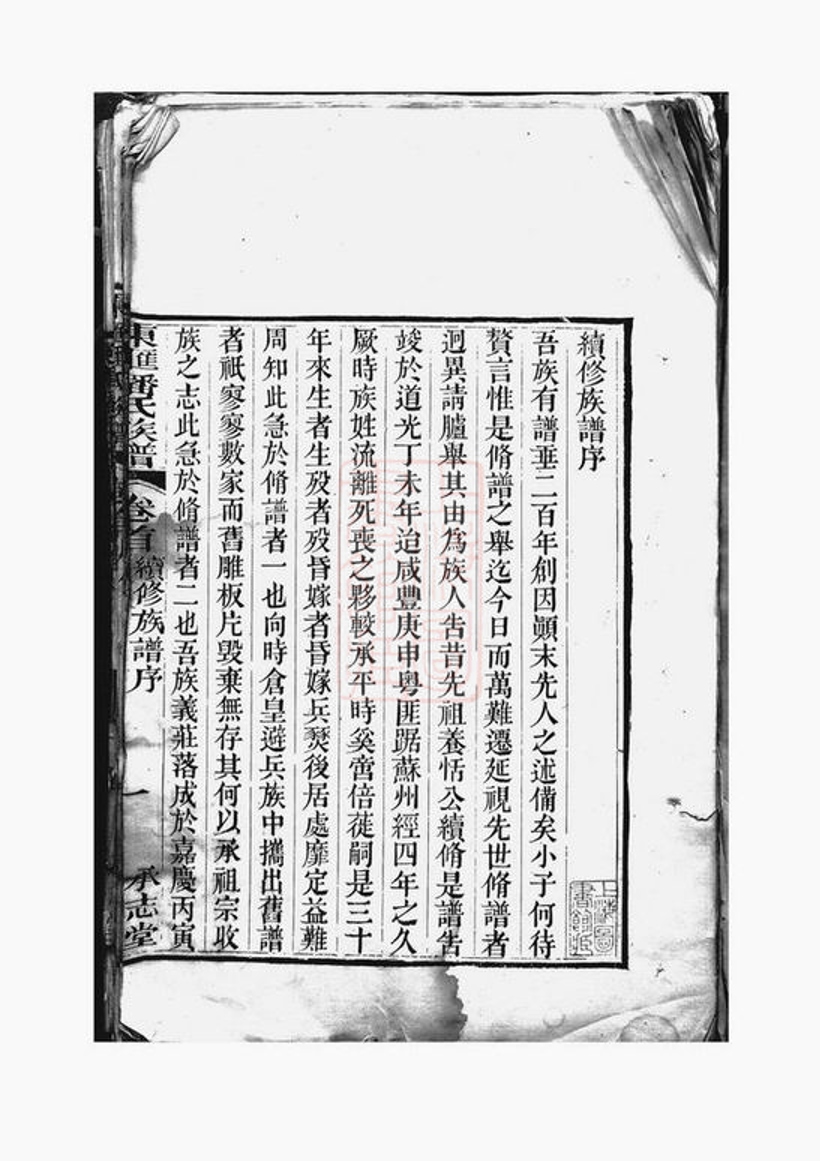 續修族譜序
吾族有譜垂二百年創因顚末先人之述備矣小子何待
贅言惟是脩譜之舉迄今日而萬難遷延視先世脩譜者
迥異請臚舉其由為族人告昔先祖養恬公續脩是譜告
竣於道光丁未年迨咸豐庚申粵匪踞蘇州經四年之久
厥時族姓流離死喪之夥較承平時奚啻倍蓰嗣是三十
年來生者生歿者歿昏嫁者昏嫁兵燹後居處靡定益難
周知此急於脩譜者一也向時倉皇避兵族中攜出舊譜
者祇寥寥數家而舊雕板片毀棄無存其何以承祖宗收
族之志此急於脩譜者二也吾族義莊落成於嘉慶丙寅
東匯潘氏族譜 卷首 續修族譜序 一 承志堂
上海圖書館藏